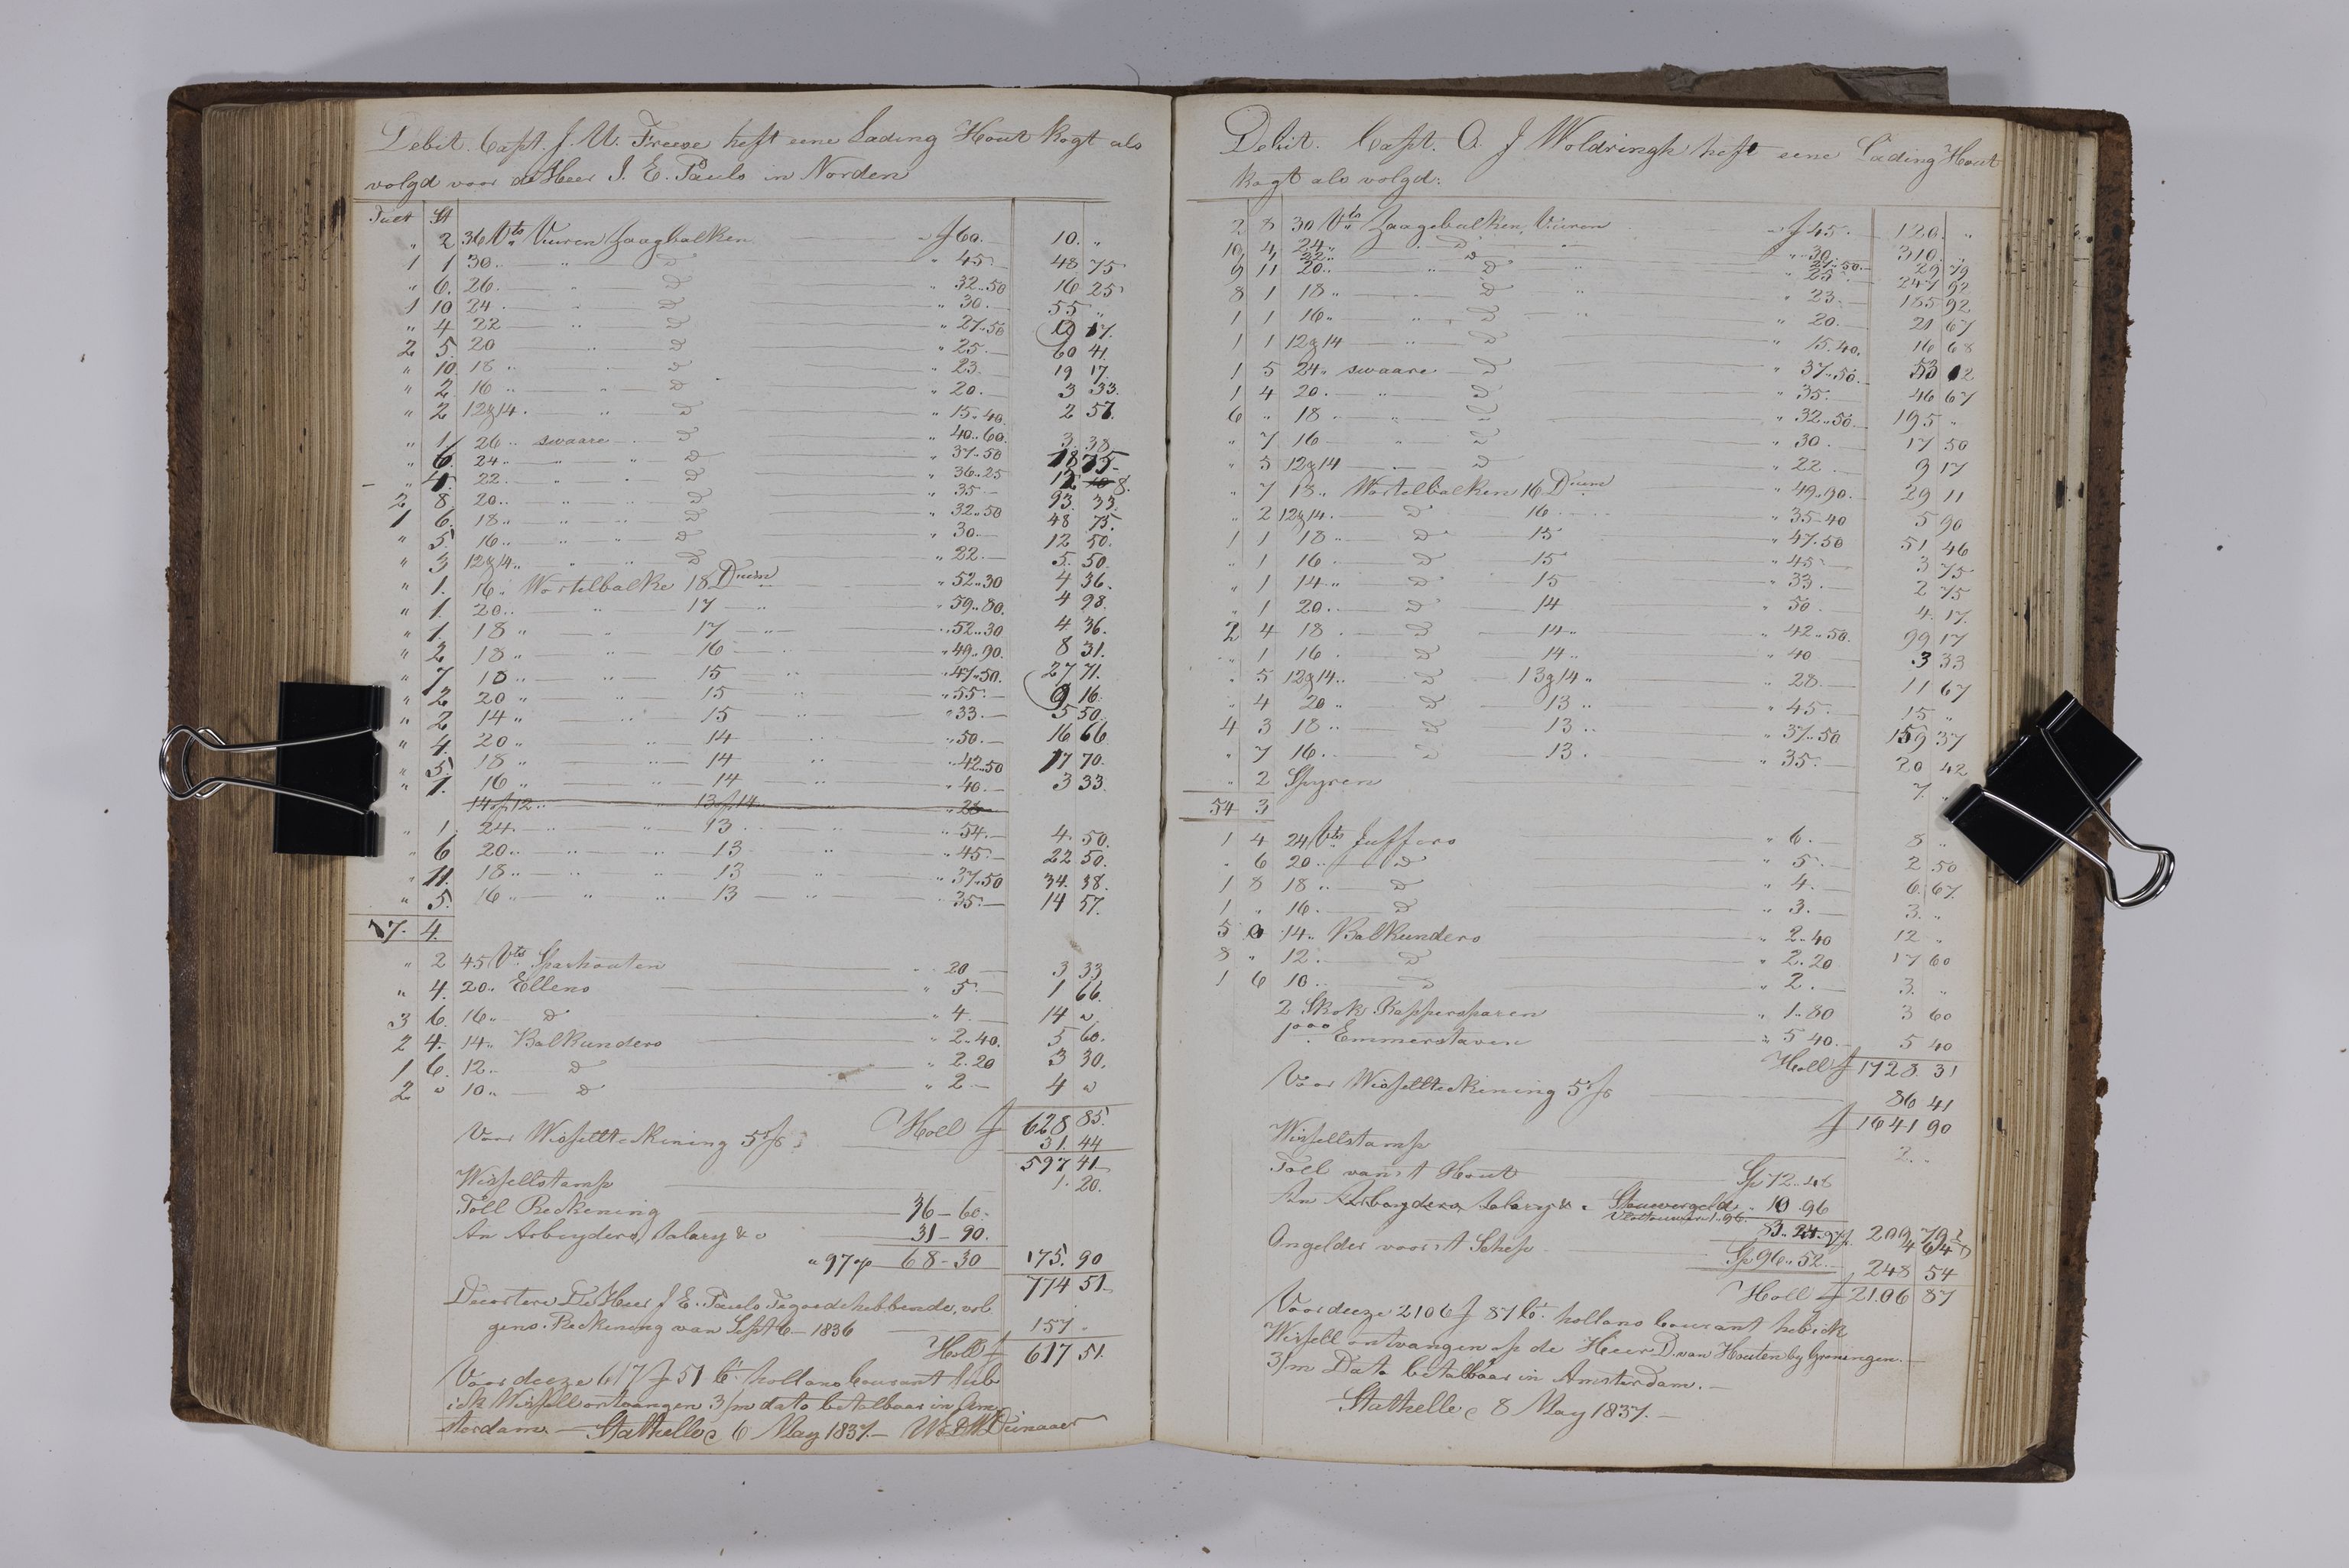 Debit. Capt. J. U. Freese heft eene Lading Hout kogt als
volgd voor de Heer J. E. Pauls in Norden
Tult St
" 2 36 Vts Vuuren Zaagbalken f 60. 10. "
1 1 30 " D " 45 48 75
" 6. 26. " D " 32..50 16 25
1 10 24. " D " 30. 55 "
" 4 22 " D " 27..50 9 17.
2 5. 20 " D " 25. 60 41.
" 10. 18 " D " 23. 19 17.
" 2. 16 " D " 20. 3 33.
" 2 12 á 14. " D " 15..40. 2 57.
" 1. 26 " swaare D " 40..60. 3. 38
" 6. 24 " " D " 37..50 18 75
" 4. 22 " " D " 36..25 12 8.
2 8 20 " " D " 35 93. 33.
1 6. 18 " " D " 32..50 48 75.
" 5. 16 " " D " 30. 12 50.
" 3 12 á 14 " " D " 22. 5. 50.
" 1. 16 " Wortelbalke 18 Duim " 52..30 4 36.
" 1 20 " " 17 " " 59..80. 4 98.
" 1. 18 " " 17 " " 52..30 4 36.
" 2 18 " " 16 " " 49..90. 8 31.
" 7 18 " " 15 " " 47..50. 27 71.
" 2 20 " " 15 " " 55. 9 16.
" 2 14 " " 15 " " 33. 5 50.
" 4. 20 " " 14 " " 50. 16 66.
" 5. 18 " " 14 " " 42..50 17 70.
" 1. 16 " " 14 " " 40. 3 33.
14 á 12 " " 13 á 14 " 28
" 1. 24. " 13 " " 54. 4. 50.
" 6 20 " " 13 " " 45. 22 50.
" 11. 18 " " 13 " " 37..50 34. 38.
" 5. 16 " " 13 " " 35. 14 57.
17. 4.
" 2 45 Vts Sparhouten " 20 3 33
" 4. 20 " Ellens " 5. 1 66.
3 6. 16 " D " 4. 14 "
2 4. 14 " Balkunders " 2..40. 5 60.
1 6. 12 " D " 2..20 3 30.
2 " 10 " D " 2 4 "
Holl f 628 85.
Voor Wisselltekining 5 pC 31. 44
597 41
Wissellstamp 1. 20.
Toll Reckening 36 – 60.
An Arbeyders, Salary &c 31 – 90.
" 97 68 – 30 175. 90
774 51.
De Heer J E. Pauls Tegoed hebbende, vol
gens. Reckening van Sept 6 – 1836 157
Holl f 617 51.
Voor deeze 617 f 51 Ct. hollans Courant heb
ick Wissell ontvangen 3/m dato betalbaar in Am
sterdam. – Stathelle 6 May 1837. –
Debit. Capt. O. J Woldringh heft eene Lading Hout
kogt als volgd:
2 8 30 Vts Zaagebalken Vuuren f 45. 120. "
10 4 24 " D " " 30. 310. "
1 1 22 " D " 27..50 29 79
9 11 20 " " D " " 25 247 92
8 1 18 " D " " 23. 185 92
1 1 16 " " D " " 20. 21 67
1 1 12 á 14 " D " 15. 40. 16 68
1 5 24 " swaare D " 37..50. 53 12
1 4 20. " D " 35. 46 67
6 " 18 " " D " 32..50. 195 "
" 7 16 " D " 30. 17 50
" 5 12 á 14 D " 22. 9 17
" 7 18 " Wortelbalken 16 Duim " 49..90. 29 11
" 2 12 á 14. D 16. " 35-40 5 90
1 1 18 " D 15 " 47..50 51 46
" 1 16 " D 15 " 45 3 75
" 1 14 " D 15 " 33. 2 75
" 1 20. D 14 " 50. 4. 17.
2 4 18. D 14 " " 42..50. 99 17
" 1 16 D 14 " " 40 3 33
" 5 12 á 14 " D 13 á 14 " " 28. 11 67
" 4 20 " D 13 " " 45. 15 "
4 3 18 " D 13 " " 37..50 159 37
" 7 16. D 13. " 35. 20 42
" 2 Spyren 7. "
54 3
1 4 24 Vts Juffers " 6. 8 "
" 6 20 " D " 5. 2 50
1 8 18 " D " 4. 6. 67.
1 " 16. D " 3. 3. "
5 0 14 " Balkunders " 2..40 12 "
8 " 12. D " 2. 20 17 60
1 6 10. D " 2. 3. "
2 Skok Rappersparen " 1..80 3 60
1000 Emmerstaven " 5 40. 5 40
Holl f 1728. 31
Voor Wisselltekining 5 pC 86 41
f 1641 90
Wissellstamp 2. "
Toll van't Hout Sp 72..48
An Arbeyders Salary & Stouwergeld 10 96
83.. 24 209 79
4 64
Ongelder voor't Schep Sp 96..52. 248 54
Holl f 2106 87
Voor deeze 2106 f 87 Ct. hollans Courant heb ick
Wissell ontvangen op de Heer D. van Houten by Groningen. –
3/m Dato betalbaar in Amsterdam. –
Stathelle 8 May 1837. –